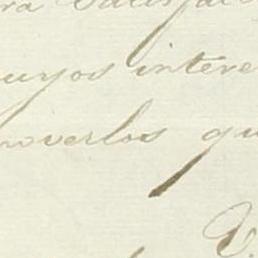 ra satisfac
cuyos intere
moverlos qu